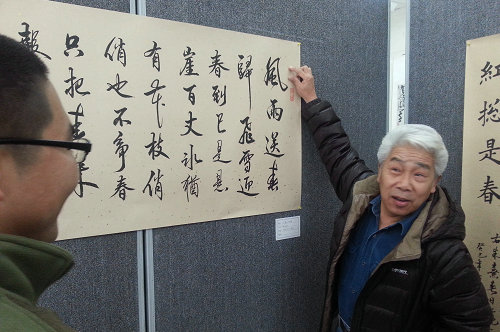 風雨送春
歸飛雪迎
春到已是悬
崖百丈冰猶
有花枝俏
俏也不爭春
只把春來
報
紅総是春
癸巳年